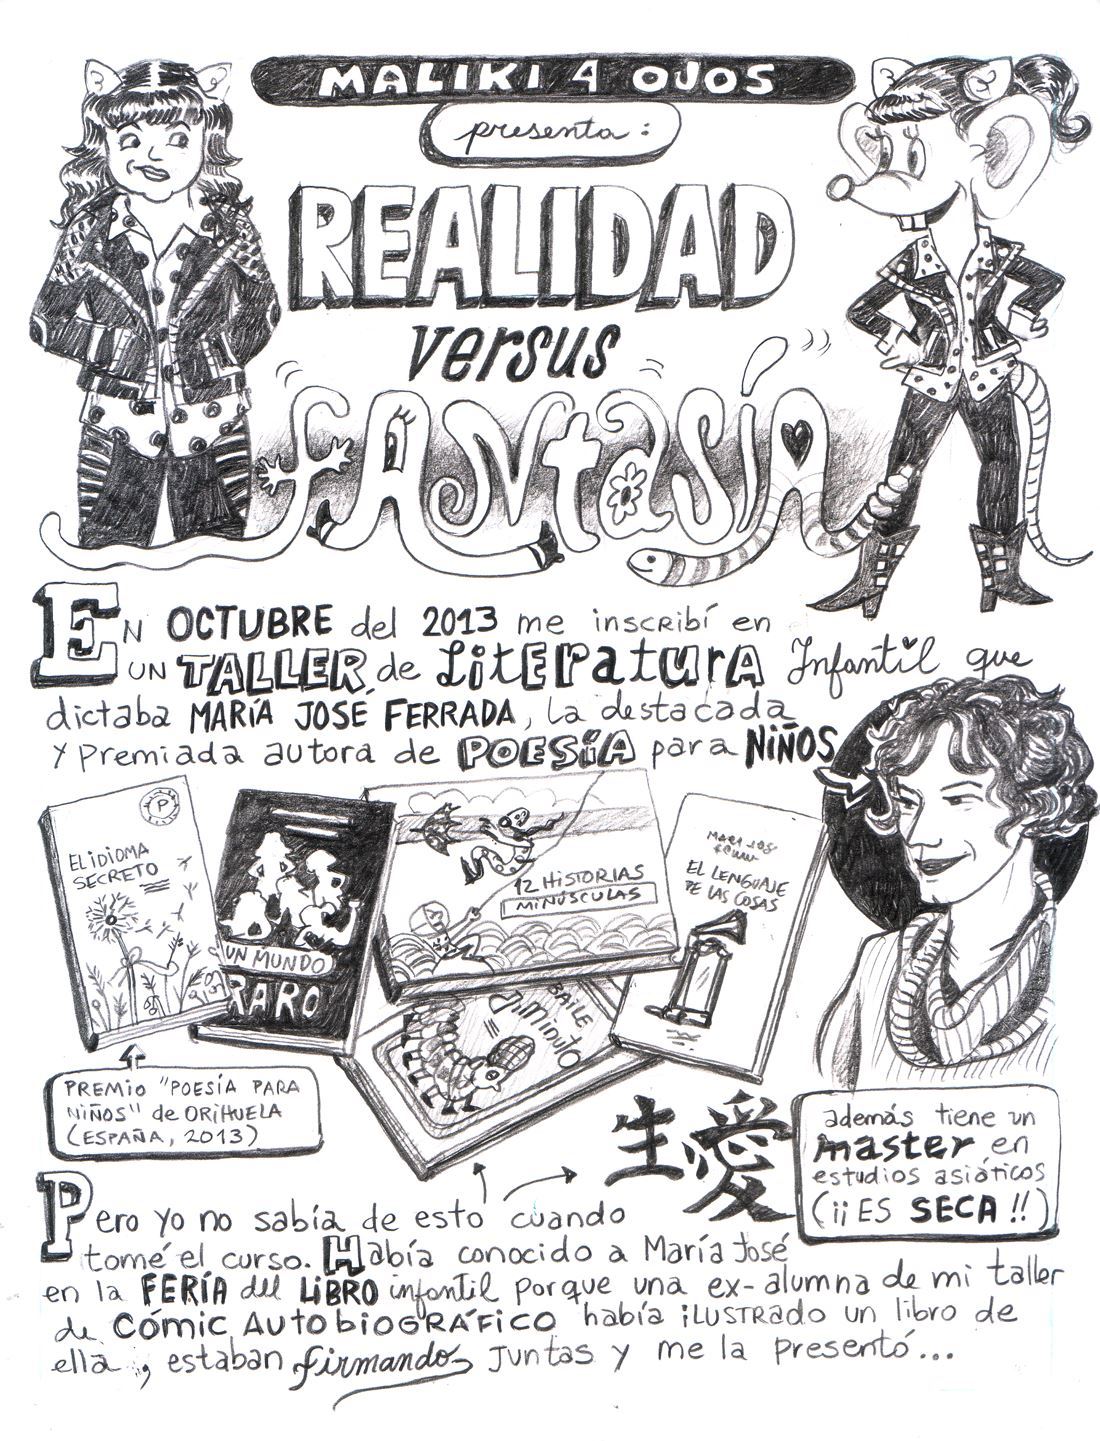 MALIKI 4 OJOS
presenta:
REALIDAD
versus
fANtaSÍA
EN OCTUBRE del 2013 me inscribí en
UN TALLER de LitERatuRA Infantil que
dictaba MARÍA JOSÉ FERRADA, la destacada
y premiada autora de POESÍA para NIÑOS
EL IDIOMA
SECRETO
UN MUNDO
RARO
12 HISTORIAS
MINÚSCULAS
EL LENGUAJE
DE LAS COSAS
BAILE
DIMINUTO
PREMIO "POESÍA PARA
NIÑOS" de ORIHUELA
(ESPAÑA, 2013)
生愛
además tiene un
master en
estudios asiáticos
(¡¡ES SECA!!)
Pero yo no sabía de esto cuando
tomé el curso. Había conocido a María José
en la FERÍA del LIBRO infantil porque una ex-alumna de mi taller
de CÓMIC AUTOBIOGRÁFICO había iLUSTRADO un libro de
ella, estaban firmando juntas y me la presentó...